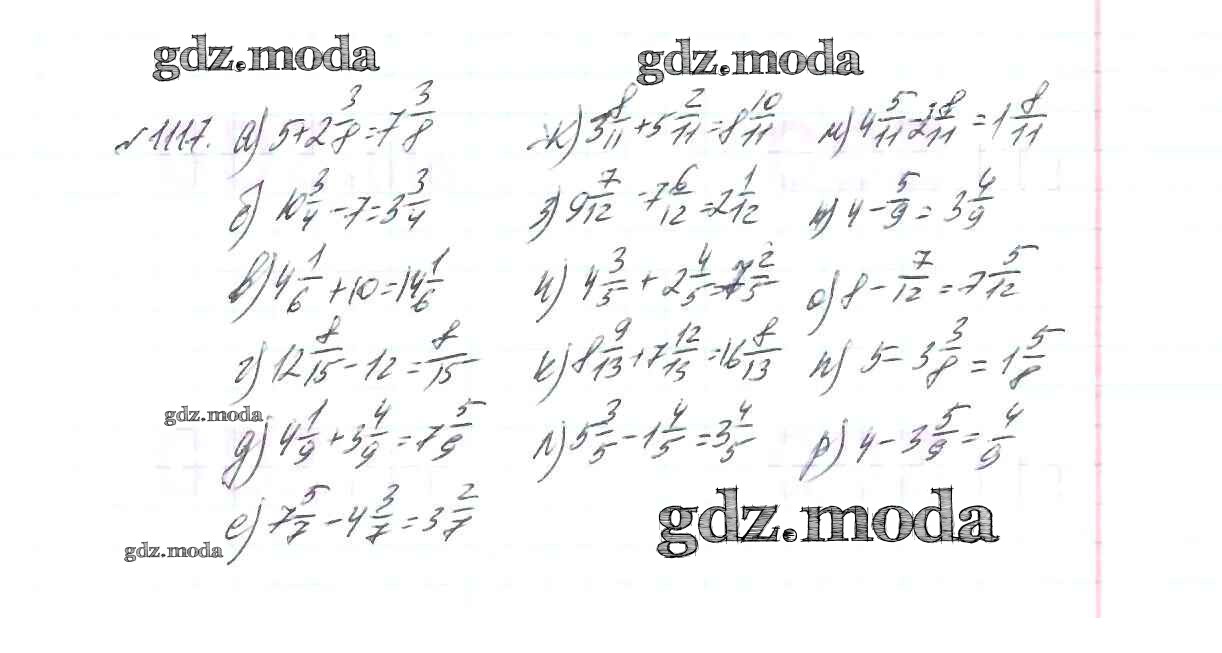 gdz.moda
gdz.moda
№1117. а) 5+2 3/8=7 3/8
б) 10 3/4-7=3 3/4
в) 4 1/6+10=14 1/6
г) 12 8/15-12=8/15
gdz.moda
д) 4 1/9+3 4/9=7 5/9
е) 7 5/7-4 3/7=3 2/7
gdz.moda
ж) 3 8/11+5 2/11=8 10/11
з) 9 7/12-7 6/12=2 1/12
и) 4 3/5+2 4/5=7 2/5
к) 8 9/13+7 12/13=16 8/13
л) 5 3/5-1 4/5=3 4/5
м) 4 5/11-2 8/11=1 8/11
н) 4-5/9=3 4/9
о) 8-7/12=7 5/12
п) 5-3 3/8=1 5/8
р) 4-3 5/9=4/9
gdz.moda